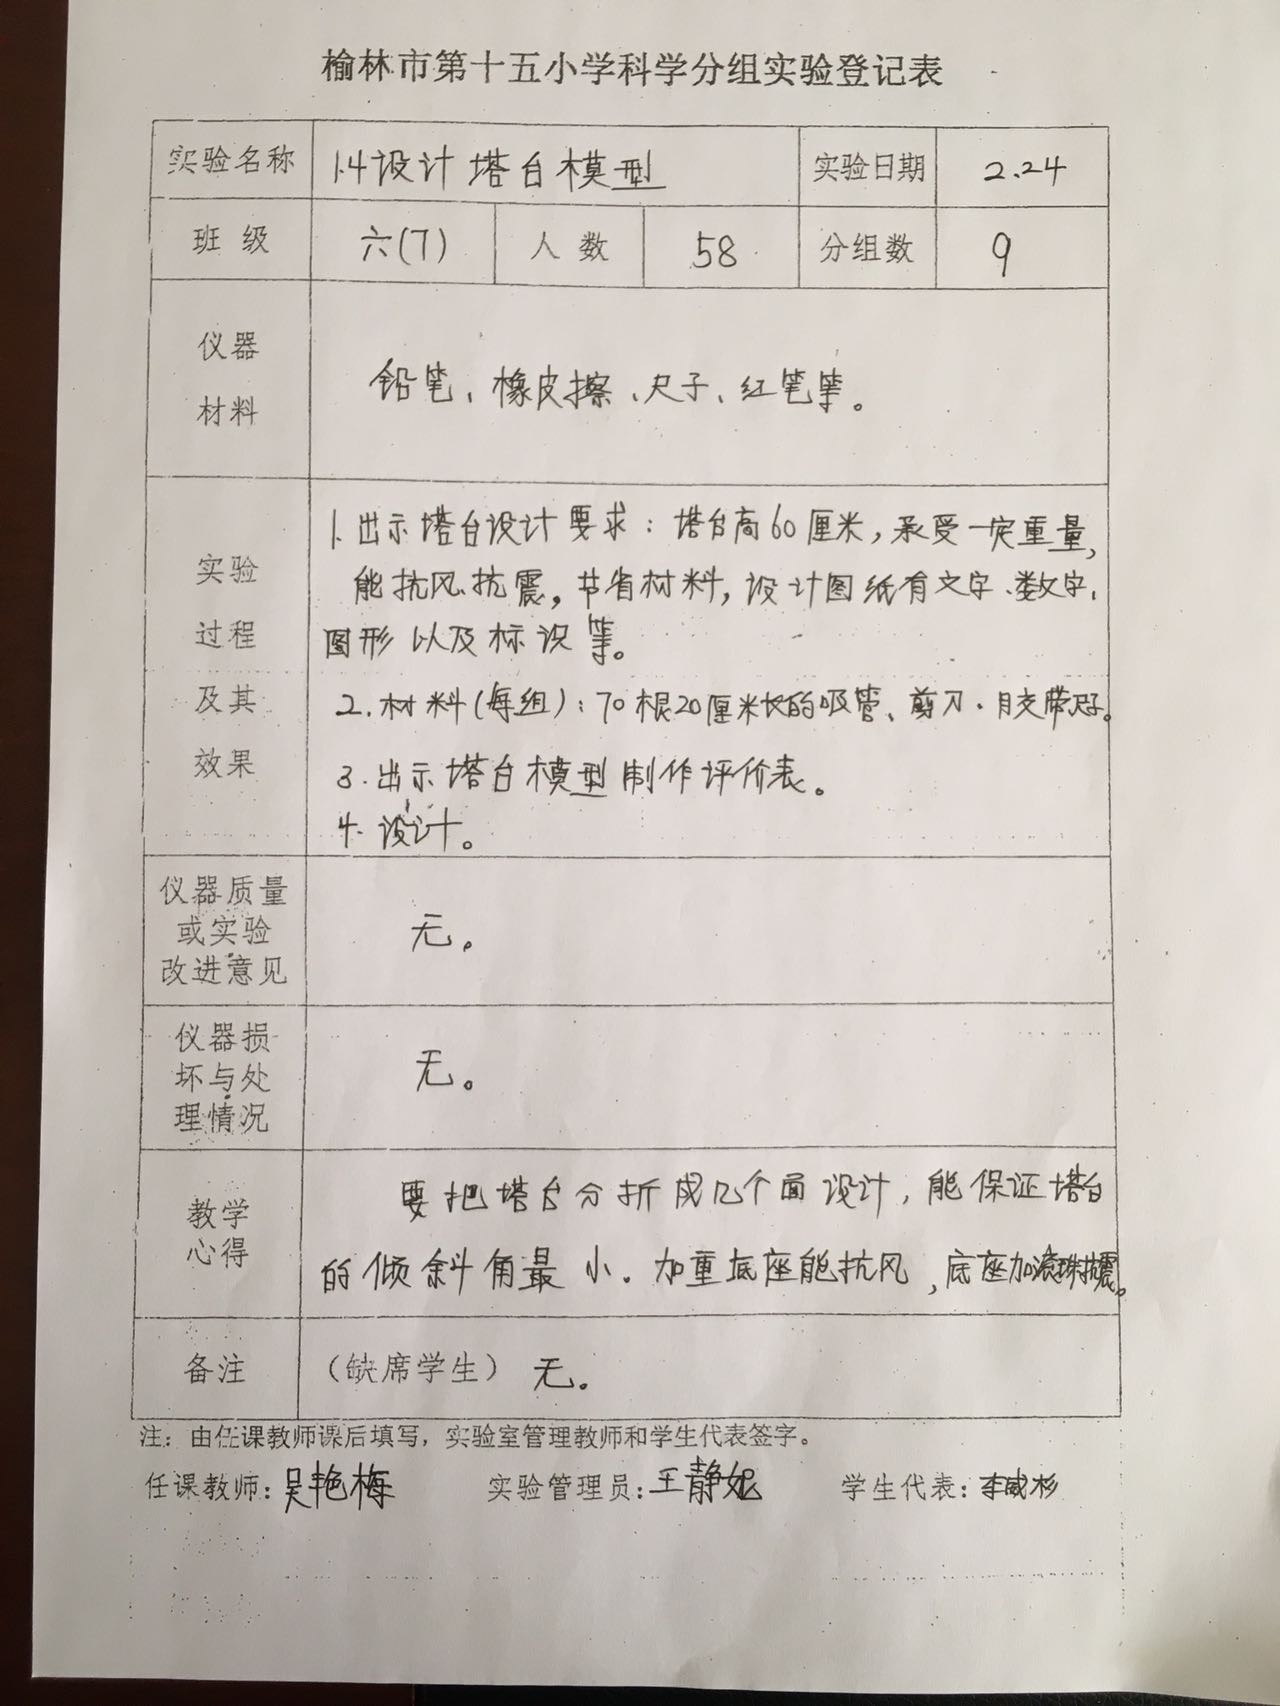 榆林市第十五小学科学分组实验登记表
实验名称 1.4设计塔台模型 实验日期 2.24
班级 六(7) 人数 58 分组数 9
仪器
材料
铅笔、橡皮擦、尺子、红笔等。
实验
过程
及其
效果
1.出示塔台设计要求：塔台高60厘米，承受一定重量，
能抗风抗震，节省材料，设计图纸有文字、数字、
图形以及标识等。
2.材料(每组)：70根20厘米长的吸管、剪刀、胶带尺子。
3.出示塔台模型制作评价表。
4.设计。
仪器质量
或实验
改进意见
无。
仪器损
坏与处
理情况
无。
教学
心得
要把塔台分折成几个面设计，能保证塔台
的倾斜角最小。加重底座能抗风，底座加滚珠抗震。
备注 （缺席学生） 无。
注：由任课教师课后填写，实验室管理教师和学生代表签字。
任课教师：吴艳梅 实验管理员：王静妮 学生代表：李威杉